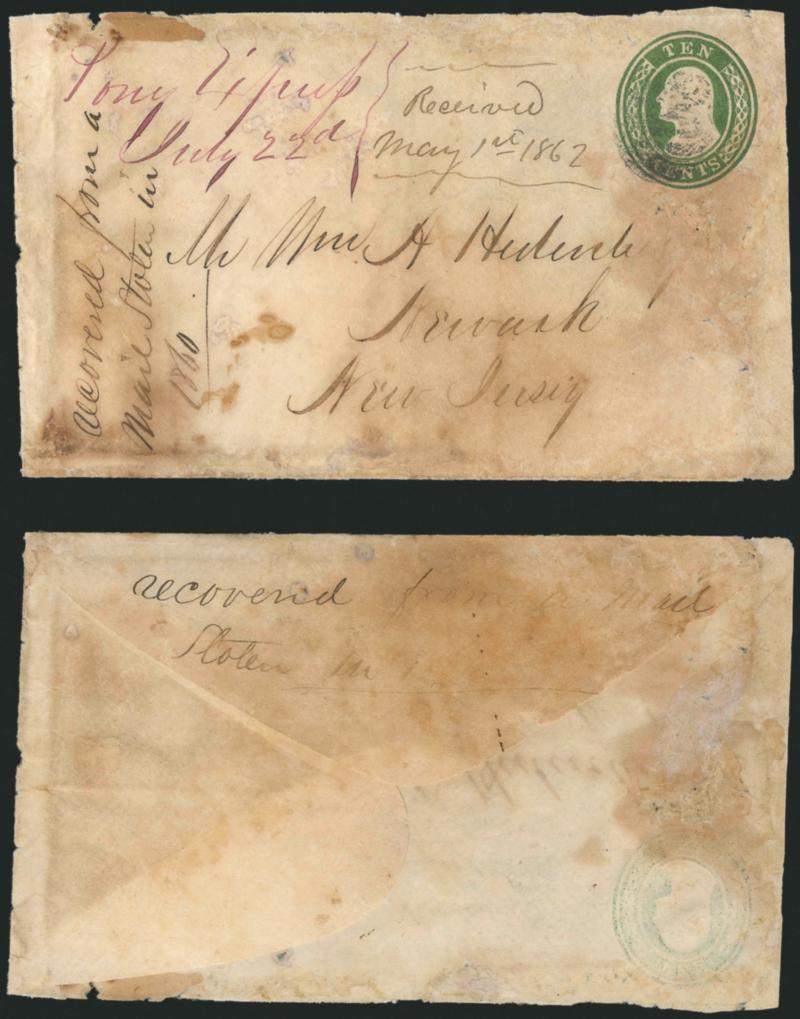 Pony Express
July 22d
Received
May 1st 1862
TEN
CENTS
recovered from a
Mail Stolen in
1860
Mr Wm A
Newark
New Jersey
recovered from a mail
Stolen in 1